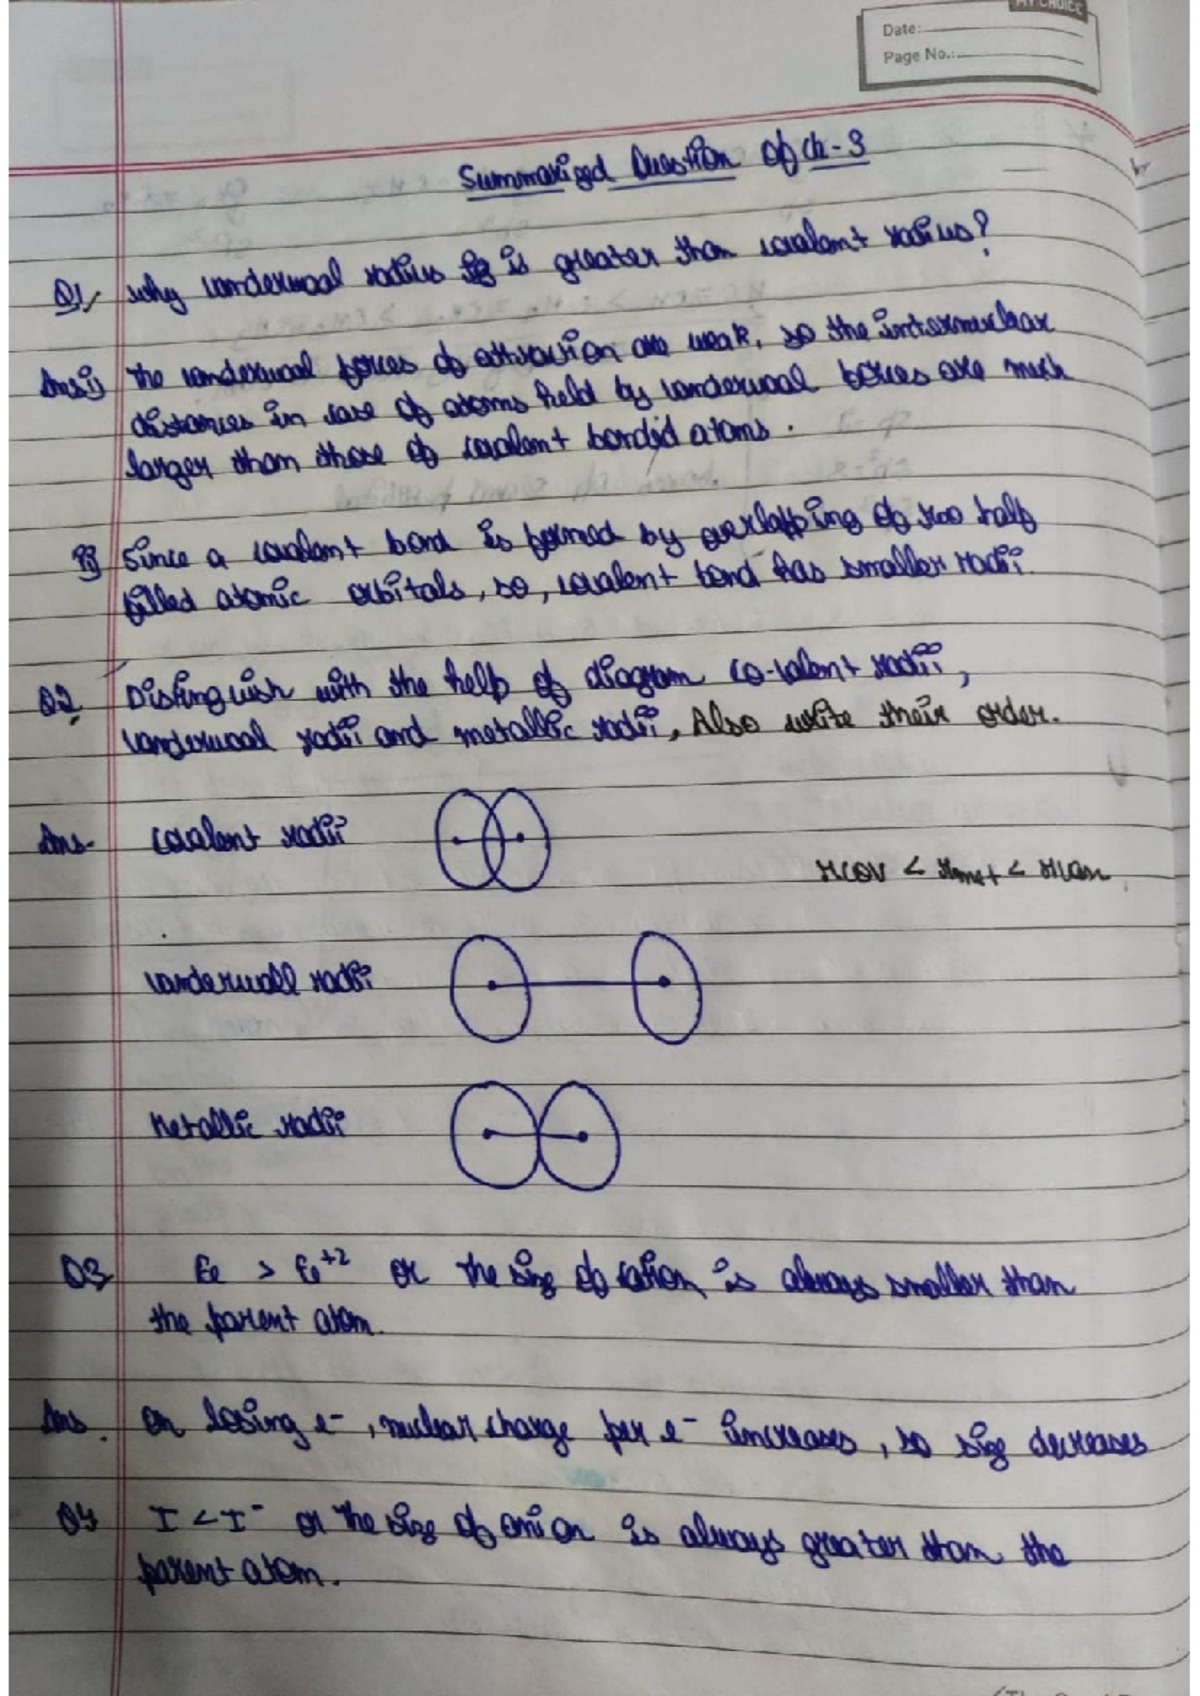 MY CHOICE
Date:
Page No.:
Summarized Question Of Ch-3
Q1, why vanderwaal radius is greater than covalent radius?
Ans i) The vanderwaal forces of attraction are weak, so the internuclear
distances in case of atoms held by vanderwaal forces are much
larger than those of covalent bonded atoms.
ii) Since a covalent bond is formed by overlapping of two half
filled atomic orbitals, so, covalent bond has smaller radii.
Q2. Distinguish with the help of diagram co-valent radii,
vanderwaal radii and metallic radii, Also write their order.
Ans- covalent radii
rcov < rmet < rvan
vanderwall radii
Metallic radii
Q3 Fe > Fe+2 or the size of cation is always smaller than
the parent atom.
Ans. On losing e-, nuclear charge per e- increases, so size decreases
Q4 I < I- or the size of anion is always greater than the
parent atom.